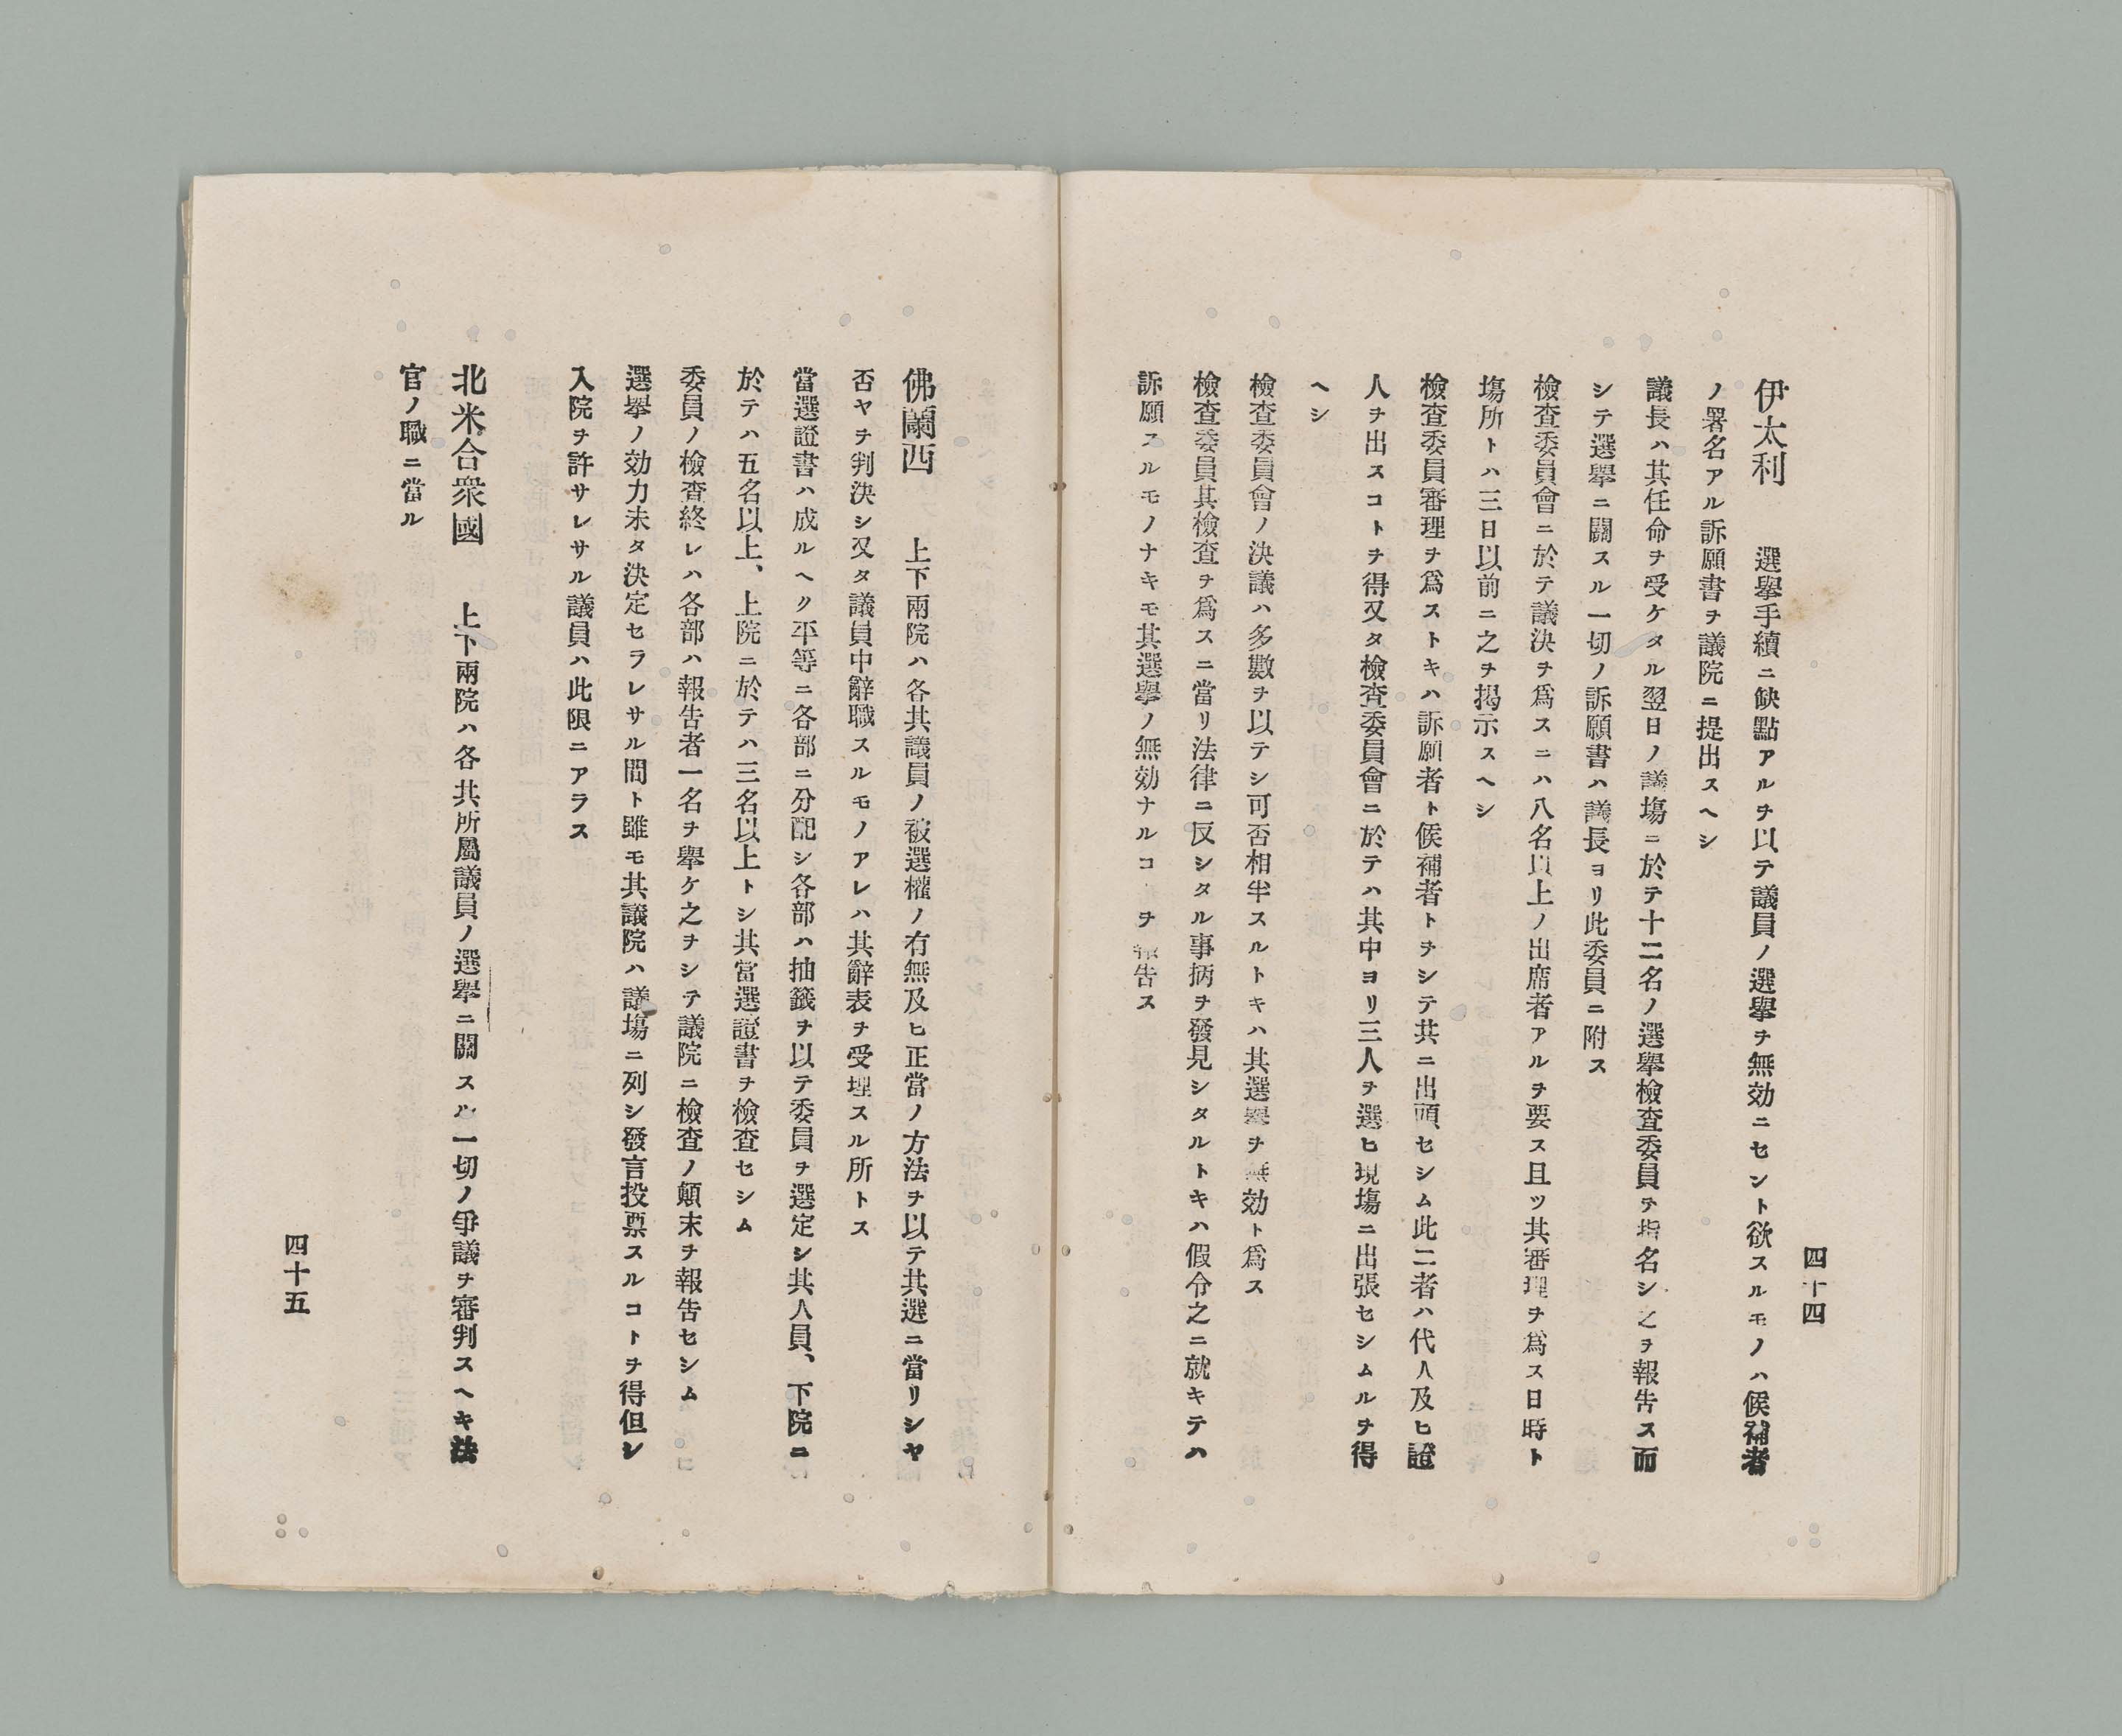 四十四
伊太利　選擧手續ニ缺點アルヲ以テ議員ノ選擧ヲ無効ニセント欲スルモノハ候補者
ノ署名アル訴願書ヲ議院ニ提出スヘシ
議長ハ其任命ヲ受ケタル翌日ノ議塲ニ於テ十二名ノ選擧檢査委員ヲ指名シ之ヲ報告ス而
シテ選擧ニ關スル一切ノ訴願書ハ議長ヨリ此委員ニ附ス
檢査委員會ニ於テ議決ヲ爲スニハ八名以上ノ出席者アルヲ要ス且ツ其審理ヲ爲ス日時ト
塲所トハ三日以前ニ之ヲ揭示スヘシ
檢査委員審理ヲ爲ストキハ訴願者ト候補者トヲシテ共ニ出頭セシム此二者ハ代人及ヒ證
人ヲ出スコトヲ得又タ檢査委員會ニ於テハ其中ヨリ三人ヲ選ヒ現塲ニ出張セシムルヲ得
ヘシ
檢査委員會ノ決議ハ多數ヲ以テシ可否相半スルトキハ其選擧ヲ無効ト爲ス
檢査委員其檢査ヲ爲スニ當リ法律ニ反シタル事抦ヲ發見シタルトキハ假令之ニ就キテハ
訴願スルモノナキモ其選擧ノ無効ナルコヲ報告ス
佛蘭西　上下兩院ハ各其議員ノ被選權ノ有無及ヒ正當ノ方法ヲ以テ其選ニ當リシヤ
否ヤヲ判決シ又タ議員中辭職スルモノアレハ其辭表ヲ受理スル所トス
當選證書ハ成ルヘク平等ニ各部ニ分配シ各部ハ抽籤ヲ以テ委員ヲ選定シ其人員、下院ニ
於テハ五名以上、上院ニ於テハ三名以上トシ其當選證書ヲ檢査セシム
委員ノ檢査終レハ各部ハ報告者一名ヲ擧ケ之ヲシテ議院ニ檢査ノ顚末ヲ報告セシム
選擧ノ効力未タ決定セラレサル間ト雖モ其議院ハ議塲ニ列シ發言投票スルコトヲ得但シ
入院ヲ許サレサル議員ハ此限ニアラス
北米合衆國　上下兩院ハ各共所屬議員ノ選擧ニ關スル一切ノ爭議ヲ審判スヘキ法
官ノ職ニ當ル
四十五